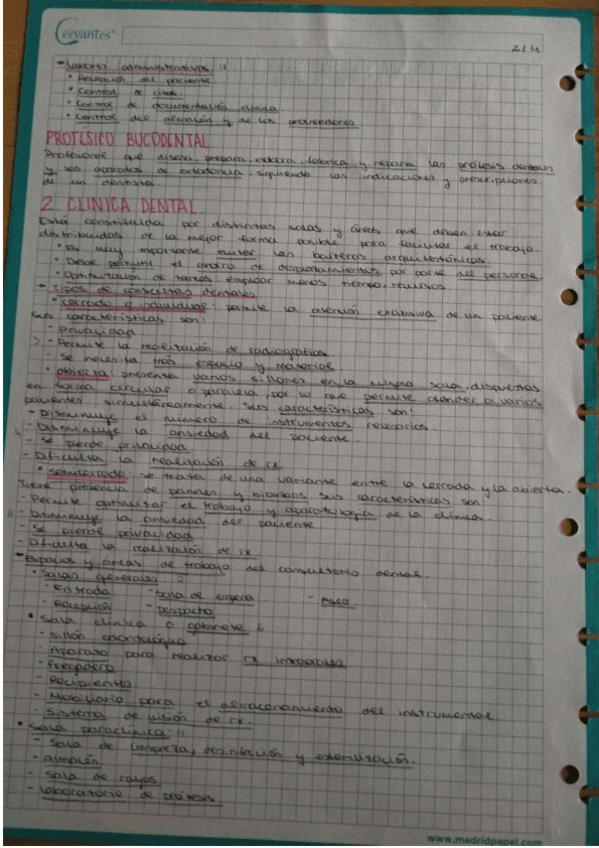 Cervantes
2/4
- Labores administrativas:
• Recepción del paciente
• Control de citas.
• Control de documentación clínica
• Control del almacén y de los proveedores
PROTÉSICO BUCODENTAL
Profesional que diseña, prepara, elabora, fabrica y repara las prótesis dentales
y los aparatos de ortodoncia, siguiendo las indicaciones y prescripciones
de un dentista.
2 CLINICA DENTAL
Está constituida por distintas salas y áreas que deben estar
distribuidas de la mejor forma posible para facilitar el trabajo.
• Es muy importante evitar las barreras arquitectónicas.
• Debe permitir el ahorro de desplazamientos por parte del personal
• Optimización de tareas: emplear menos tiempo, recursos
- Tipos de consultas dentales
• cerrada o individual: permite la atención exclusiva de un paciente
sus características son:
- Privacidad
- Permite la realización de radiografías
- Se necesita más espacio y material
• abierta: presenta varios sillones en la misma sala, dispuestos
en forma circular o paralela, por lo que permite atender a varios
pacientes simultáneamente. Sus características son:
- Disminuye el número de instrumentos necesarios.
- Disminuye la ansiedad del paciente.
- Se pierde privacidad
- Dificulta la realización de rx
• semicerrada: se trata de una variante entre la cerrada y la abierta.
Tiene presencia de paneles y biombos sus características son:
- Permite optimizar el trabajo y aparatología de la clínica.
- Disminuye la ansiedad del paciente
- Se pierde privacidad
- Dificulta la realización de rx
- Espacios y áreas de trabajo del consultorio dental.
• Salas generales:
- Entrada - Sala de espera - Aseo
- Recepción - Despacho
• Sala clínica o gabinete:
- Sillón odontológico
- Aparato para realizar rx intraorales
- Fregadero
- Recipientes
- Mobiliario para el almacenamiento del instrumental
- Sistema de visión de rx.
• Sala paraclínica:
- Sala de limpieza, desinfección y esterilización.
- Almacén
- Sala de rayos
- Laboratorio de prótesis
www.madridpapel.com